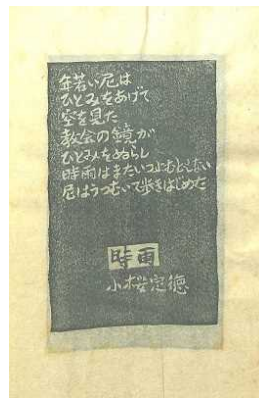 年若い尼は
ひとみをあげて
空を見た
教会の が
ひとみをぬらし
時雨はまだいつ
尼はうつむいて歩きはじめた
時雨
小桜定徳